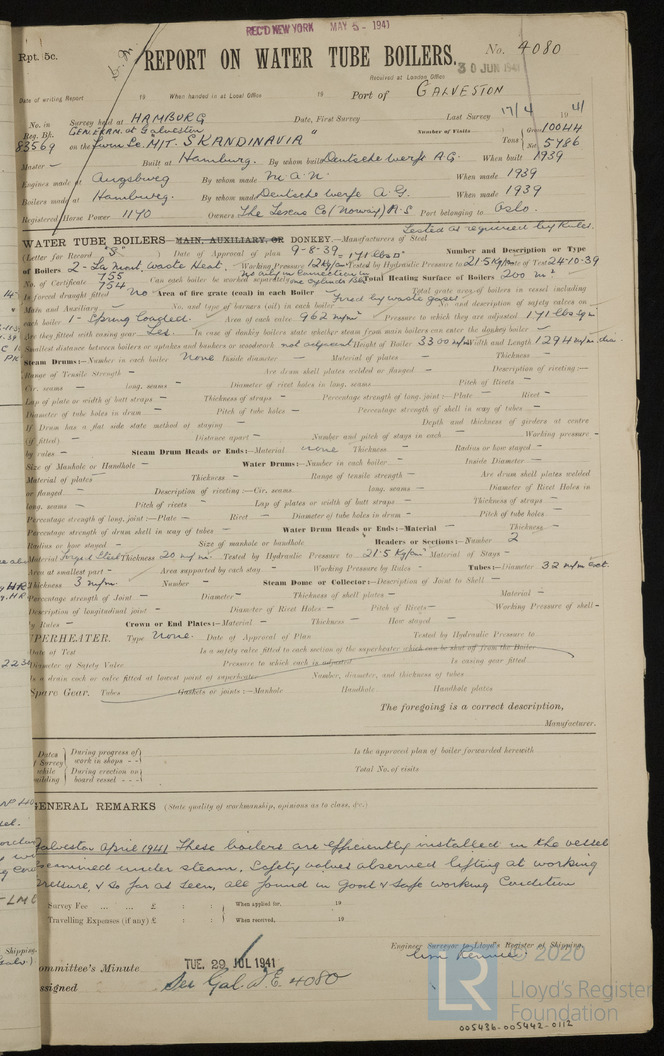 REC'D NEW YORK MAY 5 - 1941
Rpt. 5c.
REPORT ON WATER TUBE BOILERS.
No. 4080
Received at London Office 30 JUN 1941
Date of writing Report 19 When handed in at Local Office 19 Port of GALVESTON
No. in Reg. Bk. Survey held at HAMBURG Date, First Survey Last Survey 17/4 1941
GEN. EXAM. at Galveston Number of Visits
83569 on the Twin Sc. M/T. SKANDINAVIA Tons Gross 10044 Net 5786
Master Built at Hamburg. By whom built Deutsche Werft AG. When built 1939
Engines made at Augsburg By whom made M.A.N. When made 1939
Boilers made at Hamburg. By whom made Deutsche Werft A.G. When made 1939
Registered Horse Power 1170 Owners The Texas Co (Norway) A.S Port belonging to Oslo.
Tested as required by Rules.
WATER TUBE BOILERS MAIN, AUXILIARY, OR DONKEY.—Manufacturers of Steel
(Letter for Record "S") Date of Approval of plan 9-8-39 = 171 lbs □" Number and Description or Type
of Boilers 2 - La Mont Waste Heat. Working Pressure 12 Kg/cm² Tested by Hydraulic Pressure to 21.5 Kg/cm² Date of Test 24-10-39
No. of Certificate 755 754 Can each boiler be worked separately Total Heating Surface of Boilers 200 m²
Is forced draught fitted No Area of fire grate (coal) in each Boiler Total grate area of boilers in vessel including
Main and Auxiliary No. and type of burners (oil) in each boiler Fired by waste gases No. and description of safety valves on
each boiler 1 - Spring loaded. Area of each valve 962 m/m² Pressure to which they are adjusted 171 lbs sq"
Are they fitted with easing gear Yes In case of donkey boilers state whether steam from main boilers can enter the donkey boiler
Smallest distance between boilers or uptakes and bunkers or woodwork not adjacent Height of Boiler 3300 m/m Width and Length 1294 m/m dia.
Steam Drums:—Number in each boiler None Inside diameter Material of plates Thickness
Range of Tensile Strength Are drum shell plates welded or flanged Description of riveting:—
Cir. seams long. seams Diameter of rivet holes in long. seams Pitch of Rivets
Lap of plate or width of butt straps Thickness of straps Percentage strength of long. joint:—Plate Rivet
Diameter of tube holes in drum Pitch of tube holes Percentage strength of shell in way of tubes
If Drum has a flat side state method of staying Depth and thickness of girders at centre
(if fitted) Distance apart Number and pitch of stays in each Working pressure
by rules Steam Drum Heads or Ends:—Material none Thickness Radius or how stayed
Size of Manhole or Handhole Water Drums:—Number in each boiler Inside Diameter
Material of plates Thickness Range of tensile strength Are drum shell plates welded
or flanged Description of riveting:—Cir. seams long. seams Diameter of Rivet Holes in
long. seams Pitch of rivets Lap of plates or width of butt straps Thickness of straps
Percentage strength of long. joint:—Plate Rivet Diameter of tube holes in drum Pitch of tube holes
Percentage strength of drum shell in way of tubes Water Drum Heads or Ends:—Material Thickness
Radius or how stayed Size of manhole or handhole Headers or Sections:—Number 2
Material Forged Steel Thickness 20 m/m Tested by Hydraulic Pressure to 21.5 Kg/cm² Material of Stays
Area at smallest part Area supported by each stay Working Pressure by Rules Tubes:—Diameter 32 m/m ext.
Thickness 3 m/m. Number Steam Dome or Collector:—Description of Joint to Shell
Percentage strength of Joint Diameter Thickness of shell plates Material
Description of longitudinal joint Diameter of Rivet Holes Pitch of Rivets Working Pressure of shell
by Rules Crown or End Plates:—Material Thickness How stayed
SUPERHEATER. Type None. Date of Approval of Plan Tested by Hydraulic Pressure to
Date of Test Is a safety valve fitted to each section of the superheater which can be shut off from the Boiler
Diameter of Safety Valve Pressure to which each is adjusted Is easing gear fitted
Is a drain cock or valve fitted at lowest point of superheater Number, diameter, and thickness of tubes
Spare Gear. Tubes Gaskets or joints:—Manhole Handhole Handhole plates
The foregoing is a correct description,
Manufacturer.
Dates of Survey while building During progress of work in shops - - Is the approved plan of boiler forwarded herewith
During erection on board vessel - - - Total No. of visits
GENERAL REMARKS (State quality of workmanship, opinions as to class, &c.)
Galveston April 1941 These boilers are efficiently installed in the vessel
examined under steam, Safety valves observed lifting at working
pressure, & so far as seen, all found in Good & Safe working Condition
Survey Fee ... ... £ : : When applied for, 19
Travelling Expenses (if any) £ : : When received, 19
Engineer Surveyor to Lloyd's Register of Shipping.
Committee's Minute TUE. 29 JUL 1941
Assigned See Gal. D.E. 4080
LR © 2020
Lloyd's Register
Foundation
005436-005442-0112